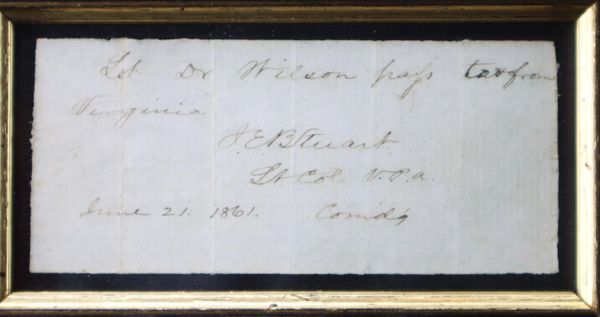 Let Dr Wilson pass to & from
Virginia
J.E.B Stuart.
Lt Col. V.P.a.
June 21. 1861. Comd'g